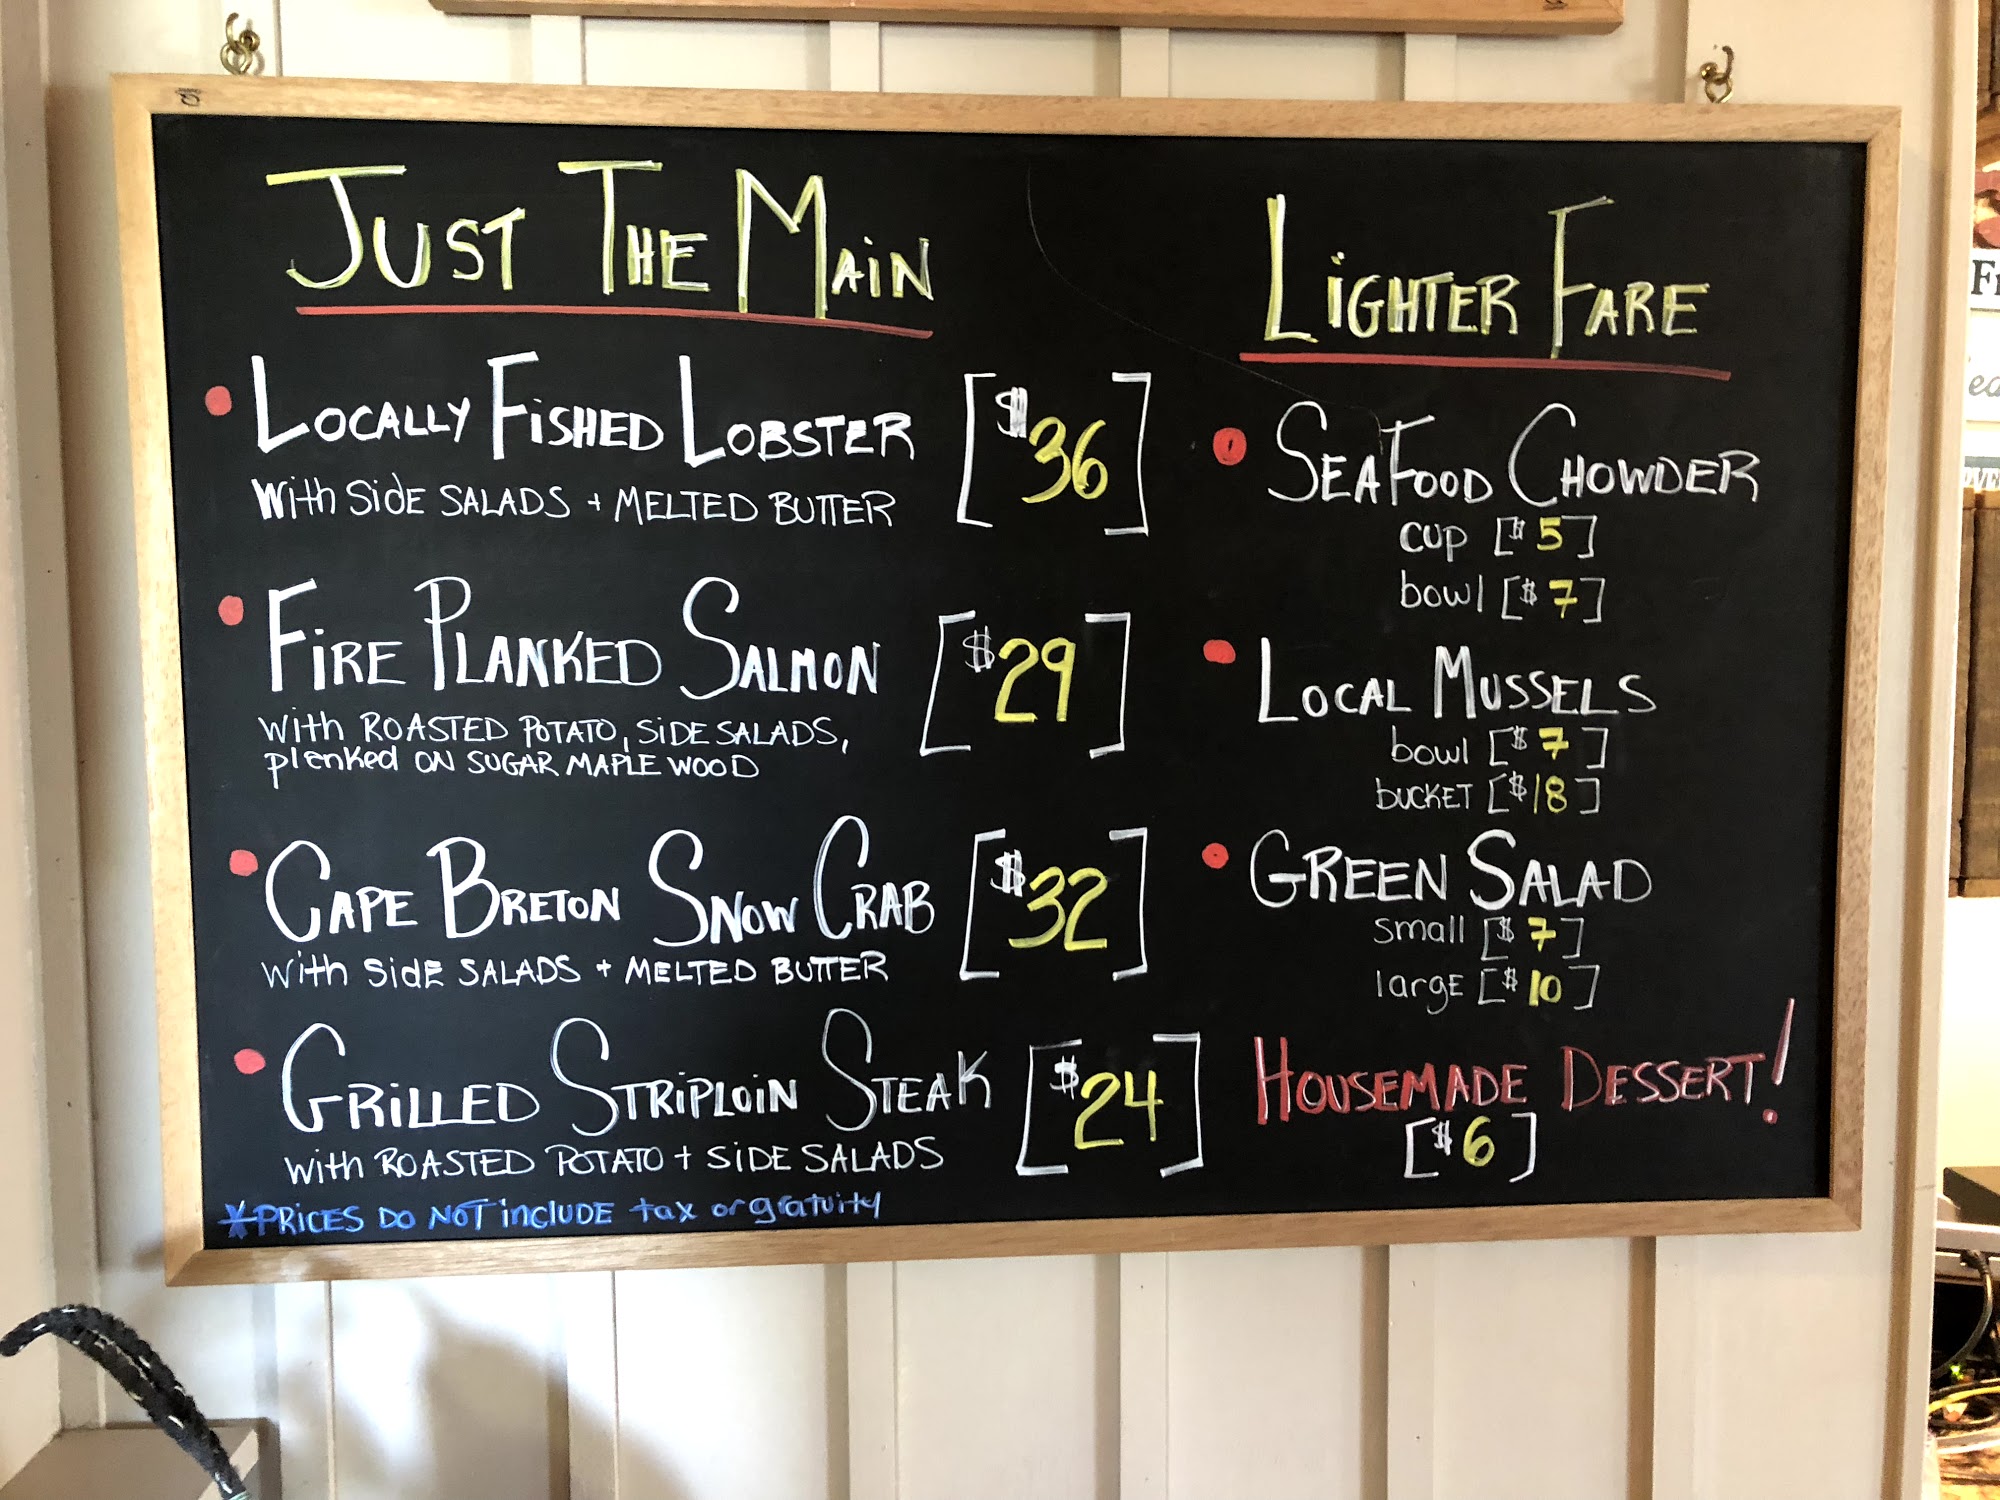 JUST THE MAIN
• LOCALLY FISHED LOBSTER [$36]
With Side SALADS + MELTED BUTTER
• FIRE PLANKED SALMON [$29]
With ROASTED POTATO, SIDE SALADS,
plenked ON SUGAR MAPLE WOOD
• CAPE BRETON SNOW CRAB [$32]
With SidE SALADS + MELTED BUTTER
• GRILLED STRIPLOIN STEAK [$24]
With ROASTED POTATO + SIDE SALADS
*PRICES DO NOT iNCLUDE tax or gratuity
LIGHTER FARE
• SEAFOOD CHOWDER
cup [$5]
bowl [$7]
• LOCAL MUSSELS
bowl [$7]
bUCKET [$18]
• GREEN SALAD
small [$7]
largE [$10]
HOUSEMADE DESSERT!
[$6]